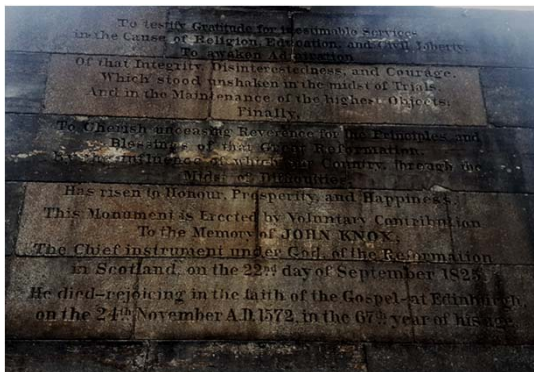 To testify Gratitude for inestimable Services
in the Cause of Religion, Education, and Civil Liberty,
To awaken Admiration
Of that Integrity, Disinterestedness, and Courage,
Which stood unshaken in the midst of Trials,
And in the Maintenance of the highest Objects.
Finally,
To Cherish unceasing Reverence for the Principles and
Blessings of that Great Reformation,
By the influence of which our Country, through the
Midst of Difficulties,
Has risen to Honour, Prosperity, and Happiness,
This Monument is Erected by Voluntary Contribution
To the Memory of JOHN KNOX,
The Chief instrument under God, of the Reformation
in Scotland, on the 22nd day of September 1825.
He died—rejoicing in the faith of the Gospel—at Edinburgh,
on the 24th November A.D. 1572, in the 67th year of his age.